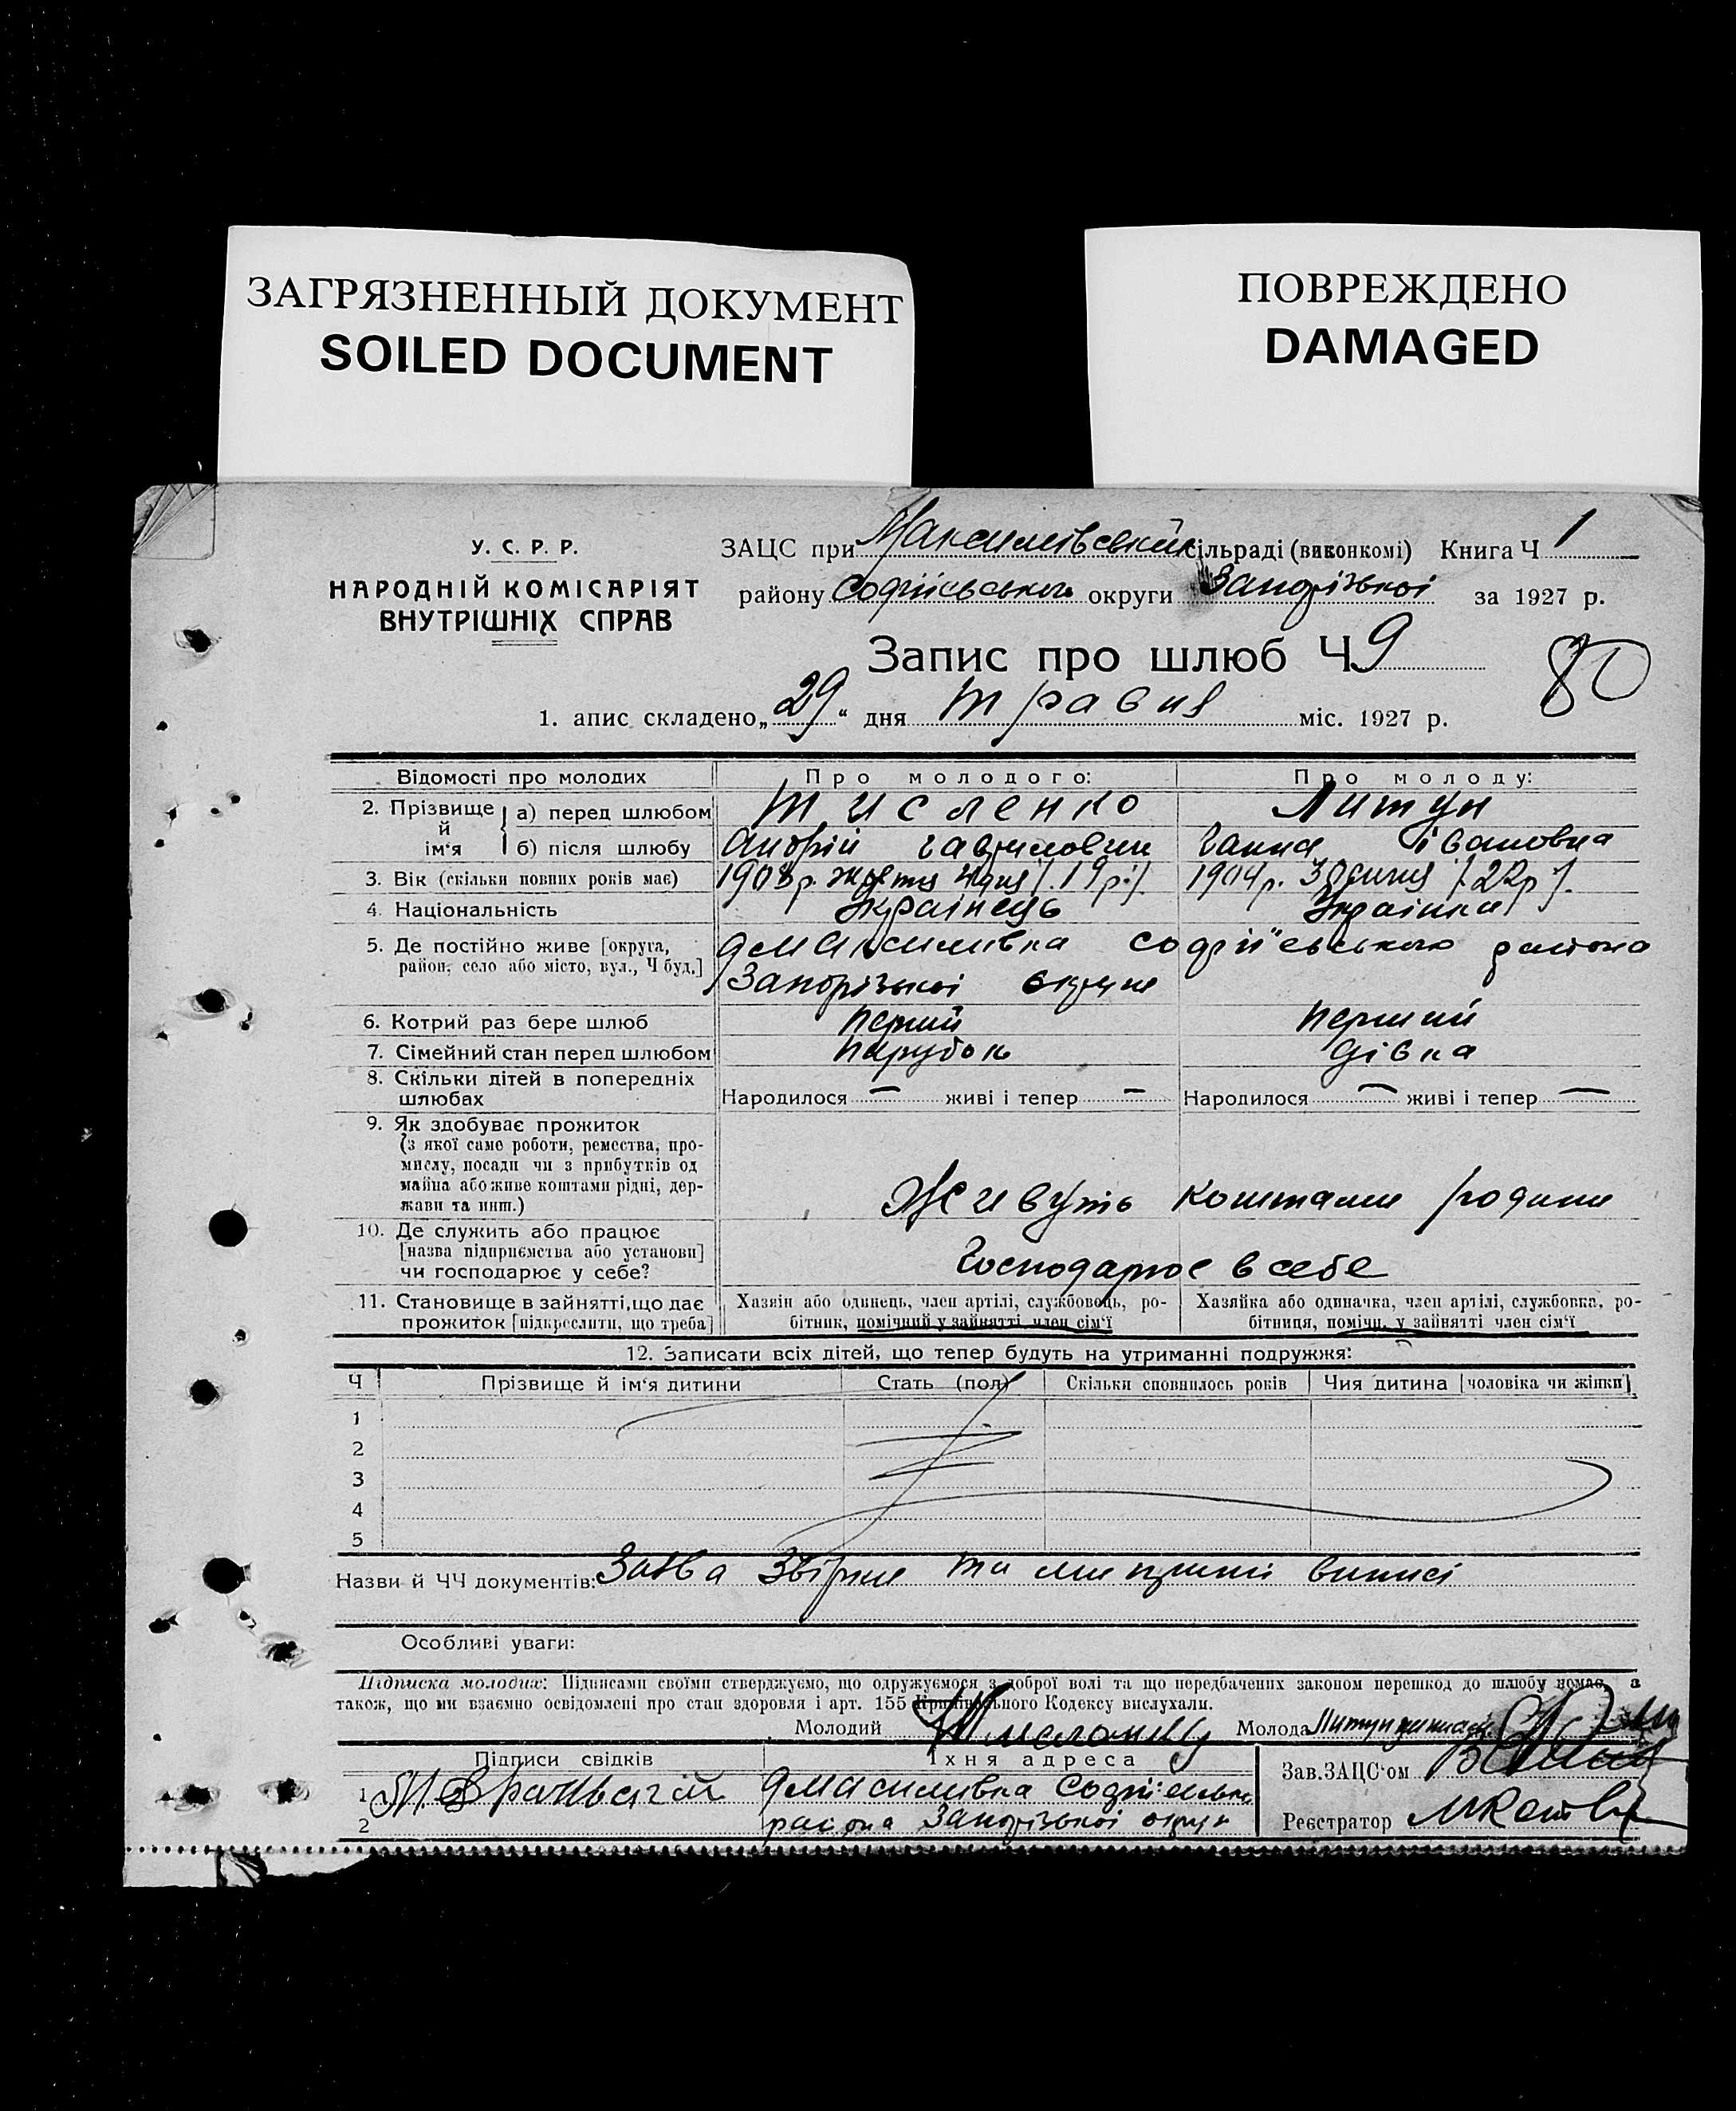 ЗАГРЯЗНЕННЫЙ ДОКУМЕНТ
SOILED DOCUMENT
ПОВРЕЖДЕНО
DAMAGED
У. С. Р. Р.
НАРОДНІЙ КОМІСАРІЯТ
ВНУТРІШНІХ СПРАВ
ЗАЦС при Максимівській сільраді (виконкомі) Книга Ч 1
району Софіївського округи Запорізької за 1927 р.
Запис про шлюб Ч 9
80
1. апис складено „29“ дня травня міс. 1927 р.
Відомості про молодих Про молодого: Про молоду:
2. Прізвище й ім‘я а) перед шлюбом Тисленко Литун
б) після шлюбу Андрій Гаврилович Ганна Івановна
3. Вік (скільки повних років має) 1908 р. жовтня 4 дня /19 р./. 1904 р. 3 /22 р/.
4. Національність Українець Українка
5. Де постійно живе [округа, район, село або місто, вул., Ч буд.] Софіївського района
Запорізької округи
6. Котрий раз бере шлюб перший перший
7. Сімейний стан перед шлюбом парубок дівка
8. Скільки дітей в попередніх шлюбах Народилося — живі і тепер — Народилося — живі і тепер —
9. Як здобуває прожиток
(з якої само роботи, ремества, про-
мислу, посади чи з прибутків од
майна або живе коштами рідні, дер-
жави та инш.) Живуть коштами родини
10. Де служить або працює
[назва підприємства або установи]
чи господарює у себе? Господарює в себе
11. Становище в зайнятті, що дає
прожиток [підкреслити, що треба]
Хазяін або одинець, член артілі, службовець, ро-
бітник, помічний у зайнятті член сім‘ї
Хазяйка або одиначка, член артілі, службовка, ро-
бітниця, помічн. у зайнятті член сім‘ї
12. Записати всіх дітей, що тепер будуть на утриманні подружжя:
Ч Прізвище й ім‘я дитини Стать (пол) Скільки сповнилось років Чия дитина [чоловіка чи жінки]
1
2
3
4
5
Назви й ЧЧ документів: Заява та метричні виписі
Особливі уваги:
Підписка молодих: Підписами своїми стверджуємо, що одружуємося з доброї волі та що передбачених законом перешкод до шлюбу немає, а
також, що ми взаємно освідомлені про стан здоровля і арт. 155 Кримінального Кодексу вислухали.
Молодий Молода Литун
Підписи свідків Їхня адреса Зав. ЗАЦС‘ом
1 Софіївськ.
2 района Запорізької округи Реєстратор